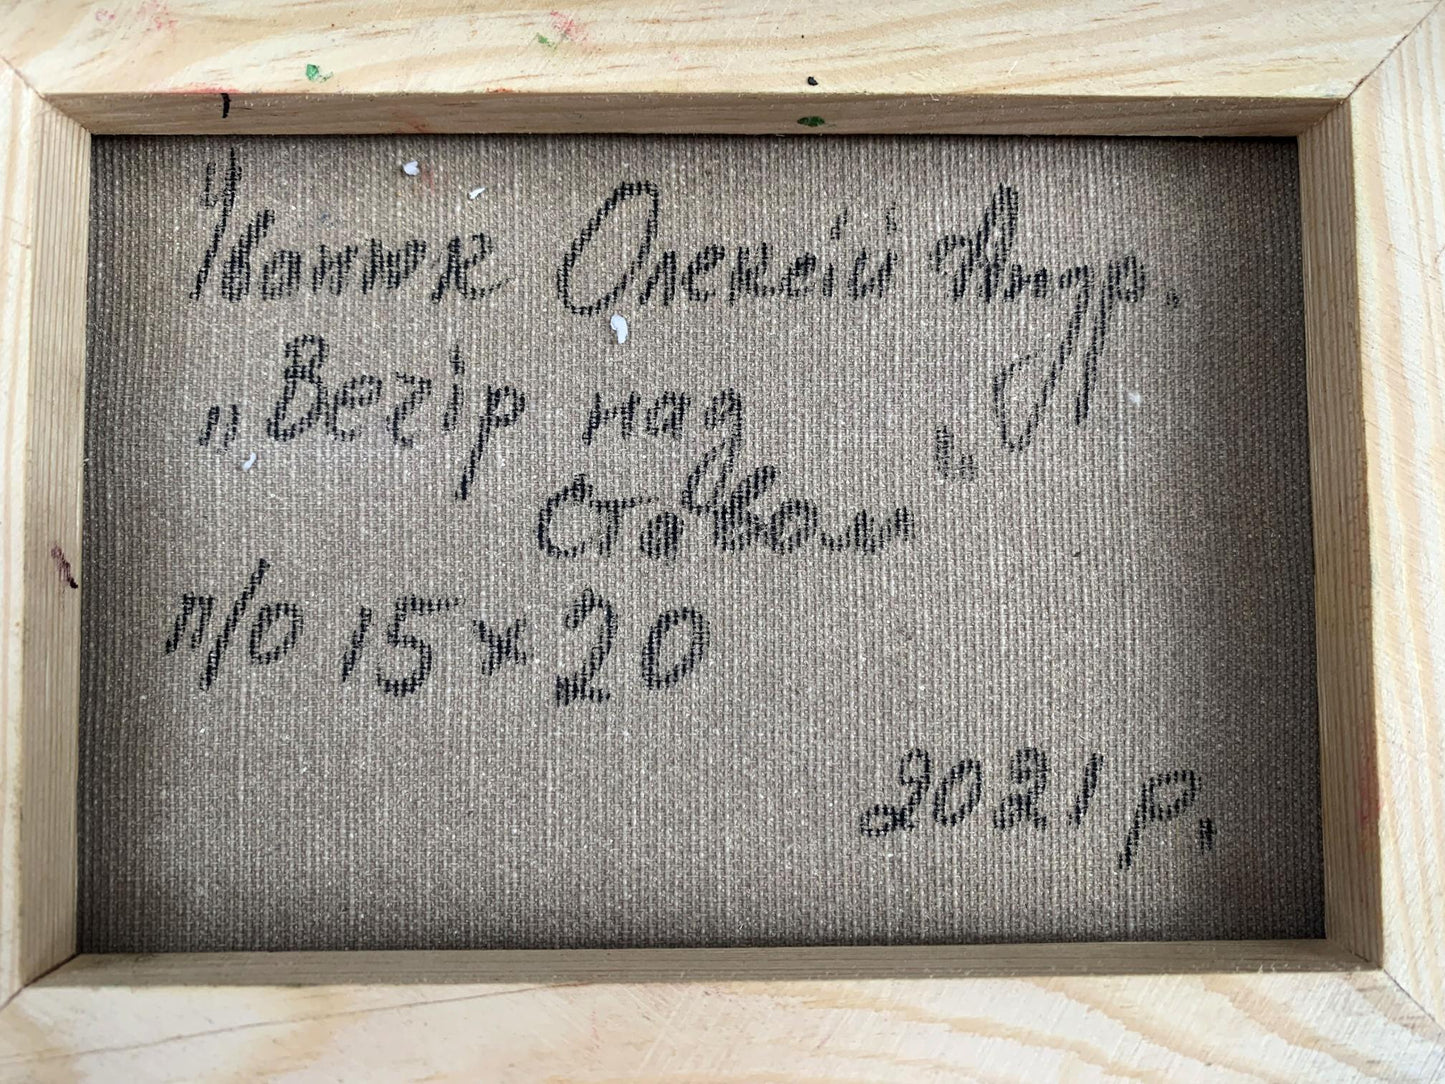 Олексій Андр.
„Вечір над
ставом“
п/о 15×20
2021 р.